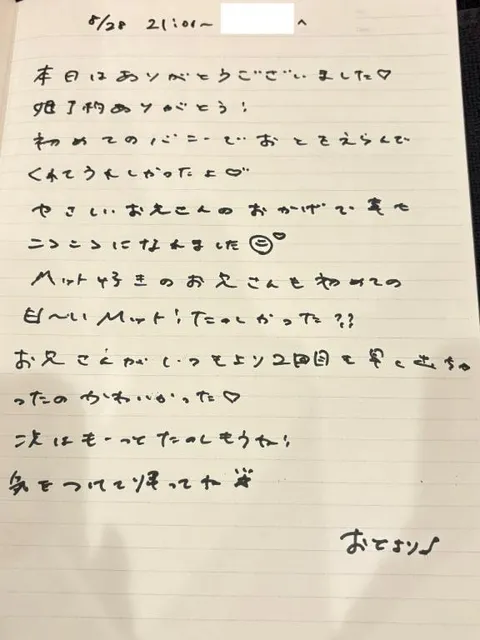 8/28 21:01〜 へ
本日はありがとうございました♡
姫予約ありがとう!
初めてのバニーでおとをえらんで
くれてうれしかったよ♡
やさしいお兄さんのおかげで
ころころになれました☺♡
マット好きのお兄さんも初めての
マット!たのしかった??
お兄さんがいつもより2回目も早く出ちゃ
ったのかわいかった♡
次はもーってたのしもうね!
気をつけて帰ってね
おとより♪